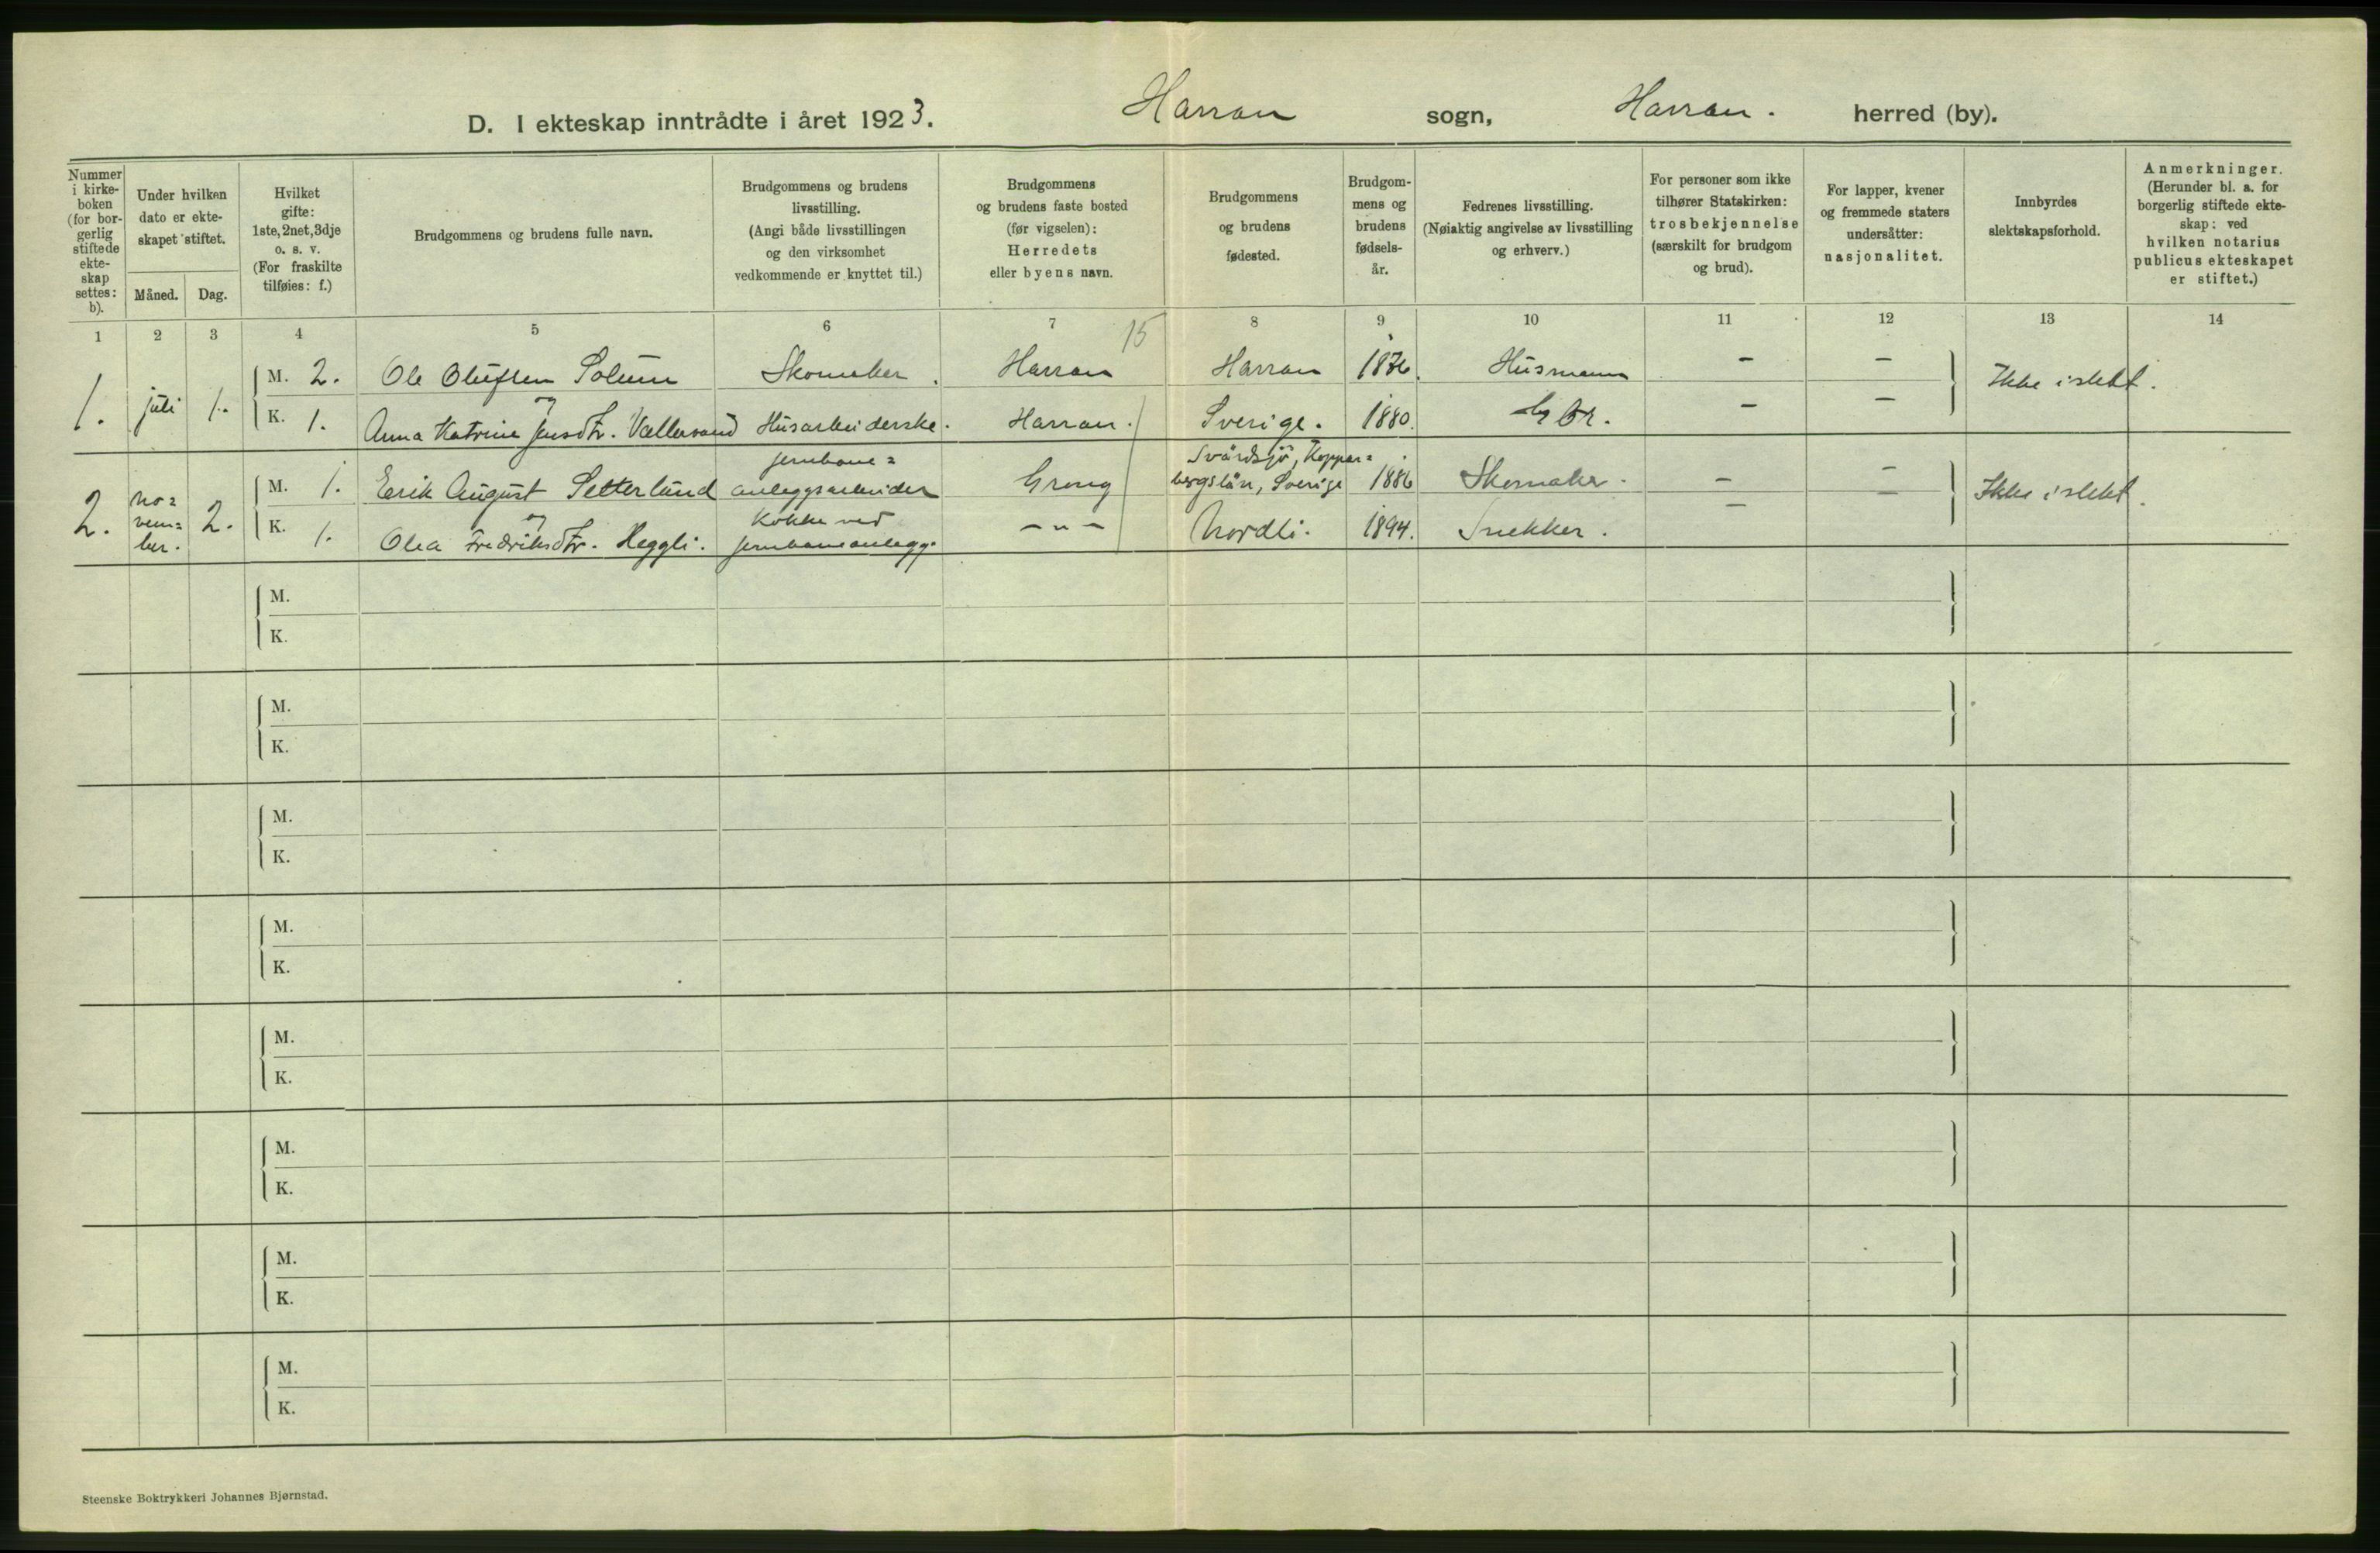 D. I ekteskap inntrådte i året 1923. Harran sogn, Harran. herred (by).
Nummer i kirke-boken (for bor-gerlig stiftede ekte-skap settes: b).
Under hvilken dato er ekte-skapet stiftet.
Måned. Dag.
Hvilket gifte: 1ste, 2net, 3dje o. s. v. (For fraskilte tilføies: f.)
Brudgommens og brudens fulle navn.
Brudgommens og brudens livsstilling. (Angi både livsstillingen og den virksomhet vedkommende er knyttet til.)
Brudgommens og brudens faste bosted (før vigselen): Herredets eller byens navn.
Brudgommens og brudens fødested.
Brudgom-mens og brudens fødsels-år.
Fedrenes livsstilling. (Nøiaktig angivelse av livsstilling og erhverv.)
For personer som ikke tilhører Statskirken: trosbekjennelse (særskilt for brudgom og brud).
For lapper, kvener og fremmede staters undersåtter: nasjonalitet.
Innbyrdes slektskapsforhold.
Anmerkninger. (Herunder bl. a. for borgerlig stiftede ekte-skap: ved hvilken notarius publicus ekteskapet er stiftet.)
1 2 3 4 5 6 7 8 9 10 11 12 13 14
15
1. juli 1. M. 2. Ole Olufsen Solum Skomaker. Harran Harran 1876. Husmann - - Ikke i slekt.
K. 1. og Anna Katrine Jensdtr. Vallervand Husarbeiderske. Harran. Sverige. 1880. - -
2. no=vem=ber. 2. M. 1. Erik August Setterlund jernbane=anleggsarbeider Grong Svärdsjö, Koppar=bergslän, Sverige 1886 Skomaker. - - Ikke i slekt.
K. 1. og Olea Fredriksdtr. Heggli. Kokke ved jernbaneanlegg. -"- Nordli. 1894. Snekker. - -
M.
K.
M.
K.
M.
K.
M.
K.
M.
K.
M.
K.
M.
K.
M.
K.
Steenske Boktrykkeri Johannes Bjørnstad.